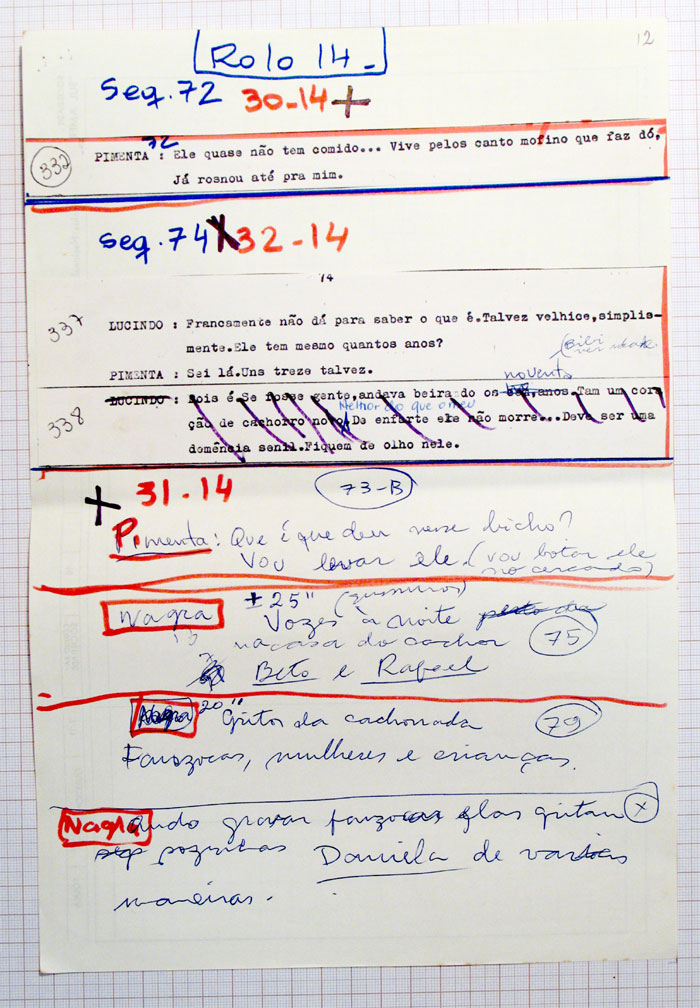 12
Rolo 14-
Seq. 72 30-14 +
72
332 PIMENTA : Ele quase não tem comido... Vive pelos canto mofino que faz dó,
Já rosnou até pra mim.
seq. 74 X 32-14
74
337 LUCINDO : Francamente não dá para saber o que é.Talvez velhice,simplis-
mente.Ele tem mesmo quantos anos?
PIMENTA : Sei lá.Uns treze talvez.
noventa
338 LUCINDO : Pois é.Se fosse gente,andava beirando os cem,anos.Tam um cora
Melhor do que o meu
ção de cachorro novo.De enfarte ele não morre...Deve ser uma
domência senil.Fiquem de olho nele.
+ 31-14 73-B
Pimenta: Que é que deu nesse bicho?
Vou levar ele. (vou botar ele
no cercado)
Nagra ± 25"
Vozes à noite
na casa do 75
Beto e Rafael
Nagra 20" Gritos da cachorrada 79
Fanzocas, mulheres e crianças.
Nagra Quando gravar fanzocas elas gritam X
Daniela de varias
maneiras.